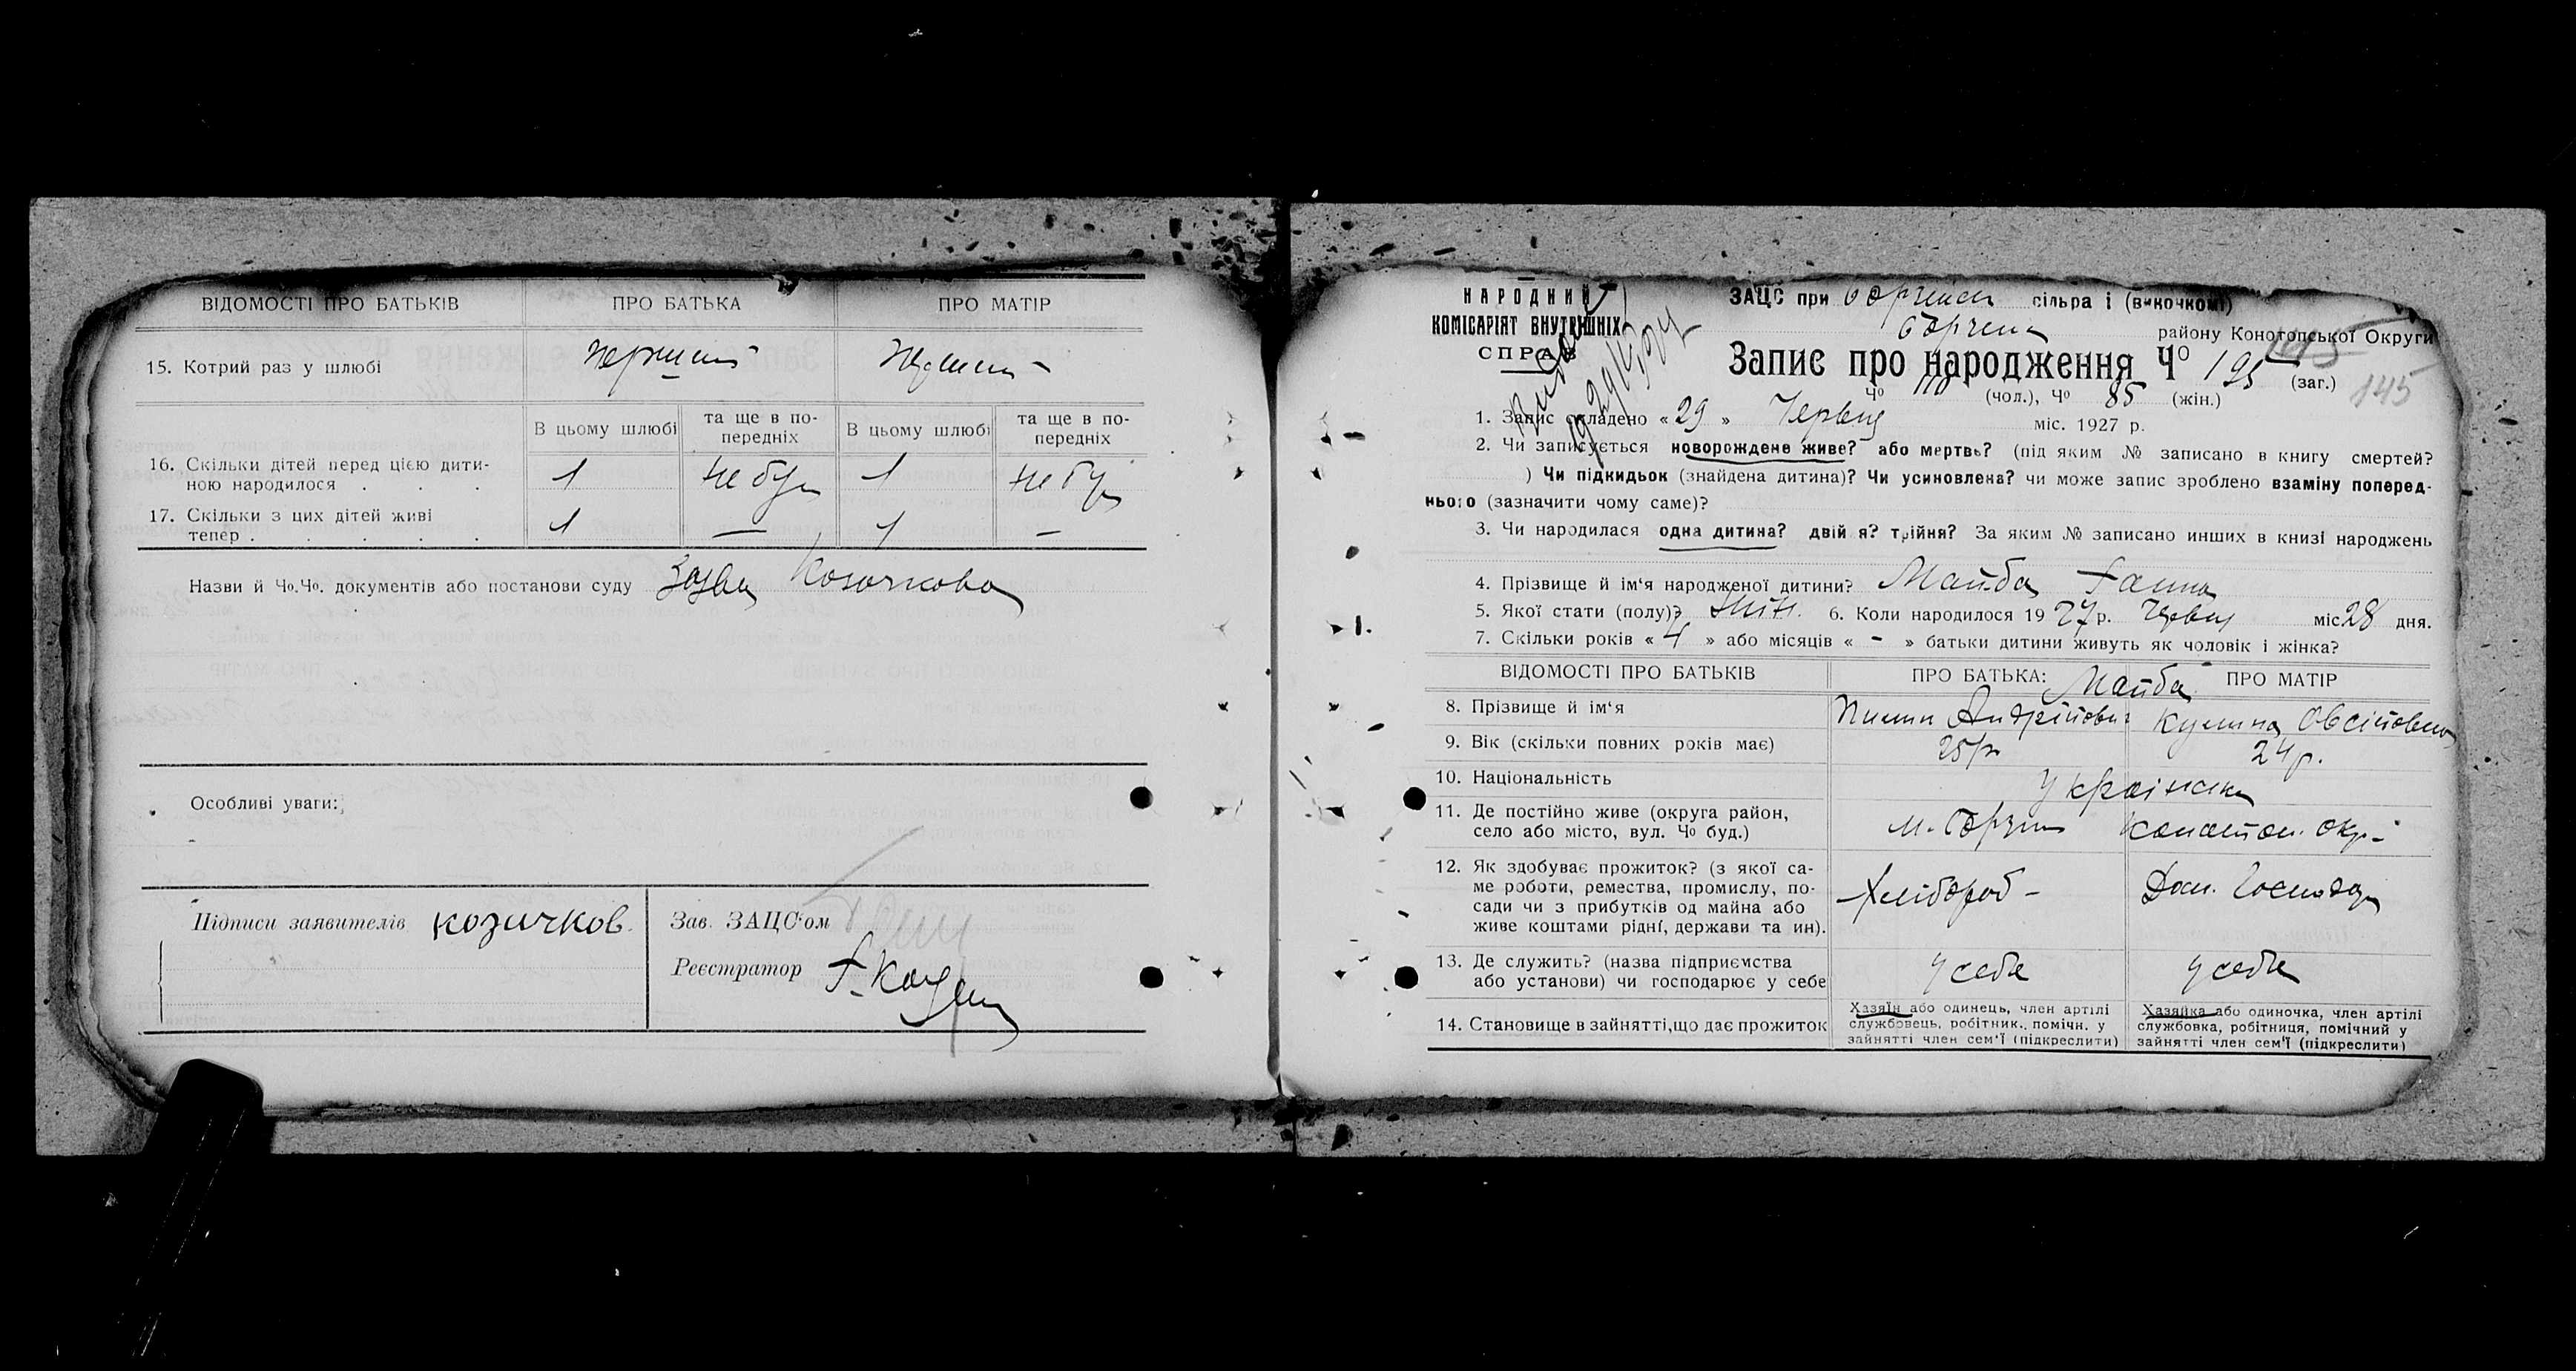 ВІДОМОСТІ ПРО БАТЬКІВ ПРО БАТЬКА ПРО МАТІР
15. Котрий раз у шлюбі перший
В цьому шлюбі та ще в по-передніх В цьому шлюбі та ще в по-передніх
16. Скільки дітей перед цією дити-
ною народилося . . . 1 не був 1 не був
17. Скільки з цих дітей живі
тепер . . . . . 1 — 1 —
Назви й Чо.Чо. документів або постанови суду Заява Козачкова
Особливі уваги:
Підписи заявителів козачков.
Зав. ЗАЦС'ом
Реєстратор
НАРОДНИЙ
КОМІСАРІЯТ ВНУТРІШНІХ
СПРАВ
ЗАЦС при сільра і (виконкомі)
району Конотопської Округи
Запис про народження Чо 195 (заг.)
145
Чо 110 (чол.), Чо 85 (жін.)
1. Запис складено « 29 » Червця міс. 1927 р.
2. Чи записується новорождене живе? або мертве? (під яким № записано в книгу смертей?
) Чи підкидьок (знайдена дитина)? Чи усиновлена? чи може запис зроблено взаміну поперед-
нього (зазначити чому саме)?
3. Чи народилася одна дитина? двійня? трійня? За яким № записано инших в книзі народжень
4. Прізвище й ім'я народженої дитини? Майба Ганна
5. Якої стати (полу)? жін. 6. Коли народилося 1927 р. Червця міс. 28 дня.
7. Скільки років « 4 » або місяців « - » батьки дитини живуть як чоловік і жінка?
ВІДОМОСТІ ПРО БАТЬКІВ ПРО БАТЬКА: ПРО МАТІР
Майба
8. Прізвище й ім'я Пилип Андрійович Кулина Овсіївна
9. Вік (скільки повних років має) 25 р. 24 р.
10. Національність Українськ
11. Де постійно живе (округа район,
село або місто, вул. Чо буд.) м. Борзна Конотоп. окр.
12. Як здобуває прожиток? (з якої са-
ме роботи, ремества, промислу, по-
сади чи з прибутків од майна або
живе коштами рідні, держави та ин). Хлібороб - Дом. Господар
13. Де служить? (назва підприємства
або установи) чи господарює у себе у себе у себе
14. Становище в зайнятті, що дає прожиток
Хазяїн або одинець, член артілі
службовець, робітник., помічн. у
зайнятті член сем'ї (підкреслити)
Хазяйка або одиночка, член артілі
службовка, робітниця, помічний у
зайнятті член сем'ї (підкреслити)